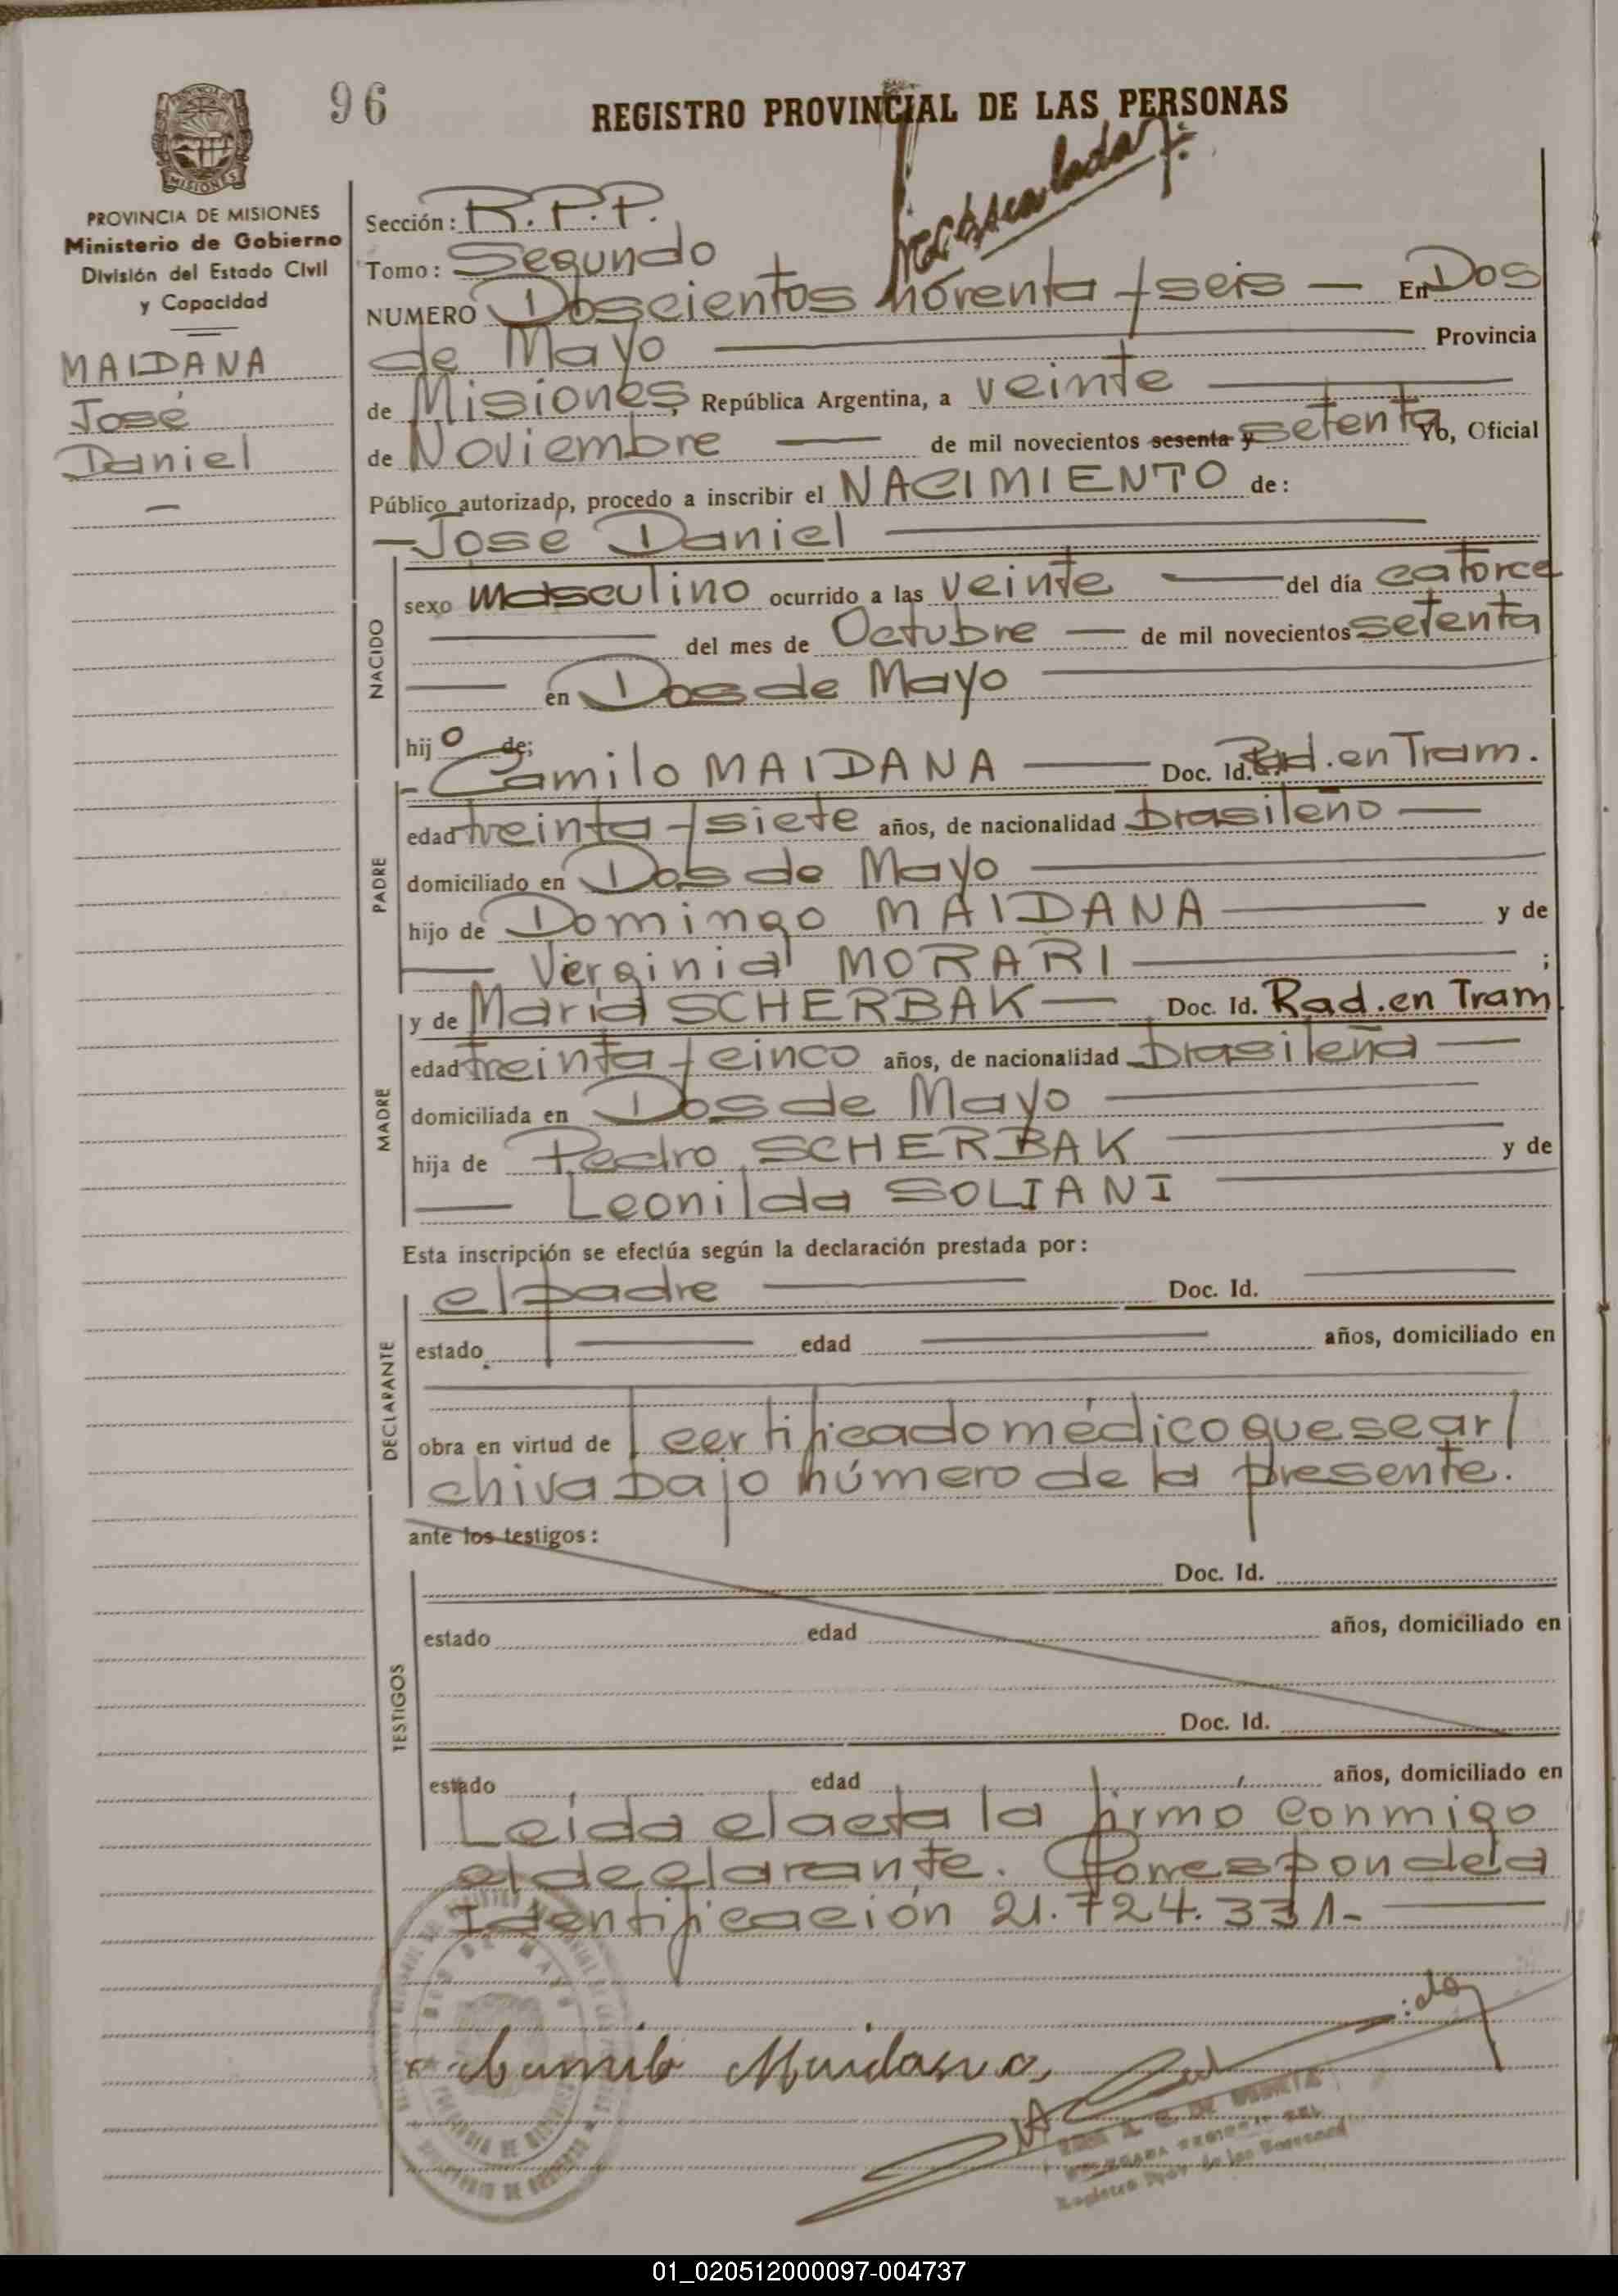 96
REGISTRO PROVINCIAL DE LAS PERSONAS
PROVINCIA DE MISIONES
Ministerio de Gobierno
División del Estado Civil
y Capacidad
MAIDANA
José
Daniel
Sección: R.P.P.
Tomo: Segundo
NUMERO Doscientos noventa y seis — En Dos
de Mayo — Provincia
de Misiones, República Argentina, a veinte —
de Noviembre — de mil novecientos sesenta y setenta Yo, Oficial
Público autorizado, procedo a inscribir el NACIMIENTO de:
— José Daniel —
NACIDO
sexo masculino ocurrido a las veinte — del día catorce
— del mes de Octubre — de mil novecientos setenta
— en Dos de Mayo —
hijo de;
PADRE
- Camilo MAIDANA — Doc. Id. Rad. en Tram.
edad treinta y siete años, de nacionalidad brasileño —
domiciliado en Dos de Mayo —
hijo de Domingo MAIDANA — y de
— Verginia MORARI — ;
MADRE
y de María SCHERBAK — Doc. Id. Rad. en Tram.
edad treinta y cinco años, de nacionalidad brasileña —
domiciliada en Dos de Mayo —
hija de Pedro SCHERBAK — y de
— Leonilda SOLIANI —
Esta inscripción se efectúa según la declaración prestada por:
DECLARANTE
el padre — Doc. Id. —
estado — edad — años, domiciliado en
obra en virtud de certificado médico que se ar/
chiva bajo número de la presente.
ante los testigos:
TESTIGOS
Doc. Id.
estado edad años, domiciliado en
Doc. Id.
estado edad años, domiciliado en
Leída el acta la firmo conmigo
el declarante. Corresponde la
Identificación 21.724.331.- —
Camilo Maidana
Registro Prov. de las Personas
01_020512000097-004737